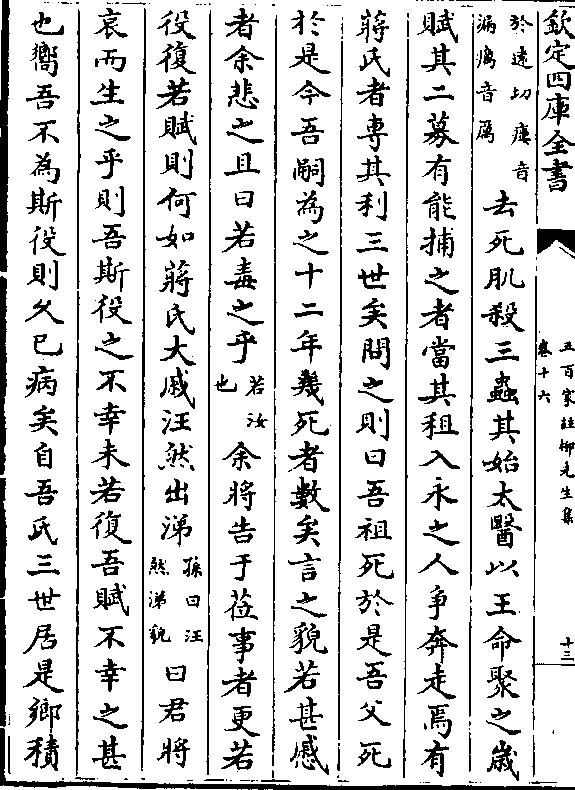 欽定四庫全書
五百家註柳先生集
卷十六
十三
於遠切瘻音
漏癘音厲
去死肌殺三蟲其始太醫以王命聚之歲
賦其二募有能捕之者當其租入永之人爭奔走焉有
蔣氏者專其利三世矣問之則曰吾祖死於是吾父死
於是今吾嗣為之十二年幾死者數矣言之貌若甚慼
者余悲之且曰若毒之乎
若汝
也
余將告于莅事者更若
役復若賦則何如蔣氏大戚汪然出涕
孫曰汪
然涕貌
曰君將
哀而生之乎則吾斯役之不幸未若復吾賦不幸之甚
也嚮吾不為斯役則久已病矣自吾氏三世居是鄉積